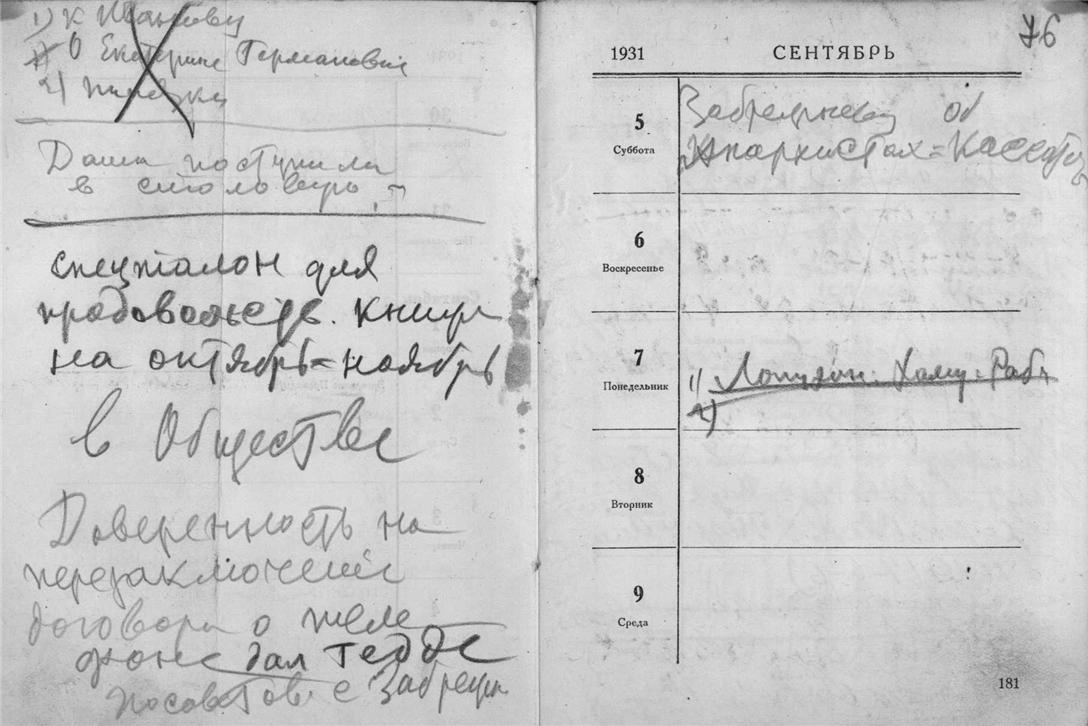 1) К Иванову
О Екатерине Германовне
2)
Даша поступила
в столовую
спецталон для
продовольств. книги
на октябрь-ноябрь
в Обществе
Доверенность на
перезаключение
договора о теле
фоне дал Тедде
посоветов. с Забрежн
76
1931 СЕНТЯБРЬ
5
Суббота
об
Анархистах =
6
Воскресенье
7
Понедельник
1)
2)
8
Вторник
9
Среда
181